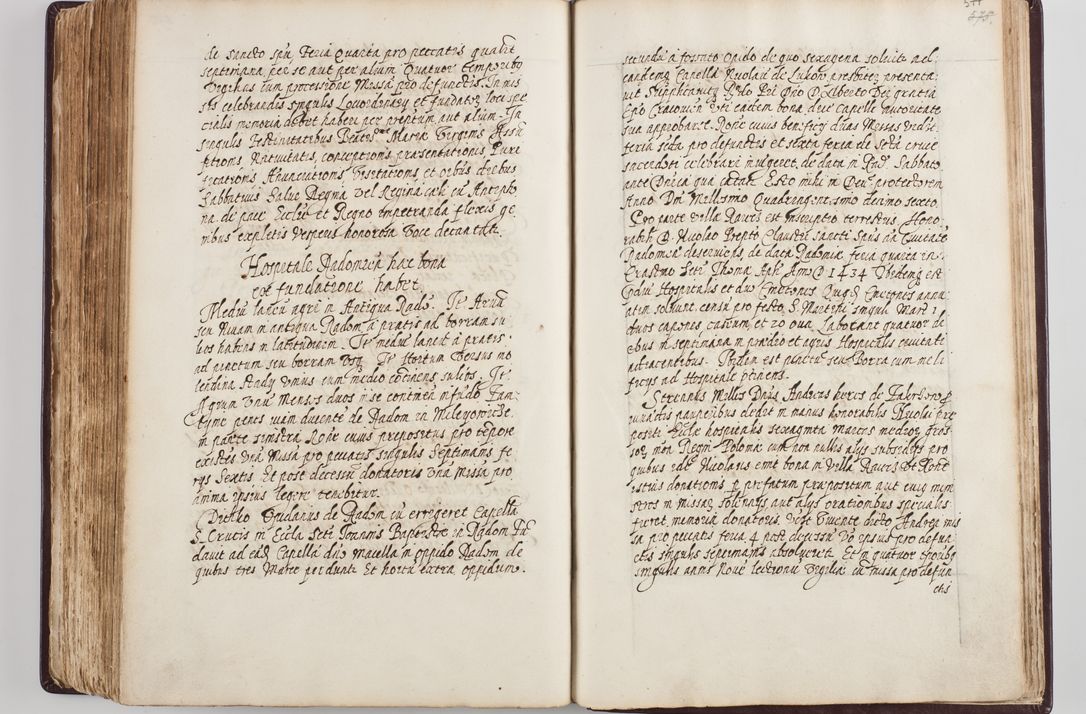 de sancto spu, Feria Quarta pro peccatis qualit
septimana per se aut per alium Quatuor temporibq
Vegilias cum processione Missa pro defunctis. In mis
sis celebrandis singulis Covordinarÿ et fundator loci spe
cialis memoria debet haberi per preptum aut alium. In
singulis Festiuitatibus Beatme Mariæ Virginis Assu
ptionis Natiuitatis, conceptionis præsentationis Puri
ficationis Anunciationis Visitationis et oibus diebus
Sabbatiuis Salue Regina Vel Regina cœli cu Antepho
na da pace Ecclie et Regno impetranda flexis ge
nibus expletis vesperis honorosa Voce decantat.
Hospitale Radomien hæc bona
ex fundatione habet,
Mediu laneu agri in Antiqua Rado. It Aream
seu Riuam in antiqua Radom a pratis ad borram su
lios habens in latitudinem. It mediu laneu a pratis
ad pinctum seu borram Vsq It Hortum Versus mo
lendina Stady vnius cum medio continens sulios. It
Agrum vnu Mensis duos in se continen in fundo Zam
tyme penes uiam ducente de Radom in Mileyowice.
in parte sinistra Rone cuius prepositus pro tepore
existes vna Missa pro peccatis singulis Septimanis fe
rys Sextis Et post decessu donatoris vna Missa pro
anima ipsius legere tenebitur.
Dithko Opidanus de Radom cu erregeret Capella
S. Crucis in Eccla Scti Joannis Baptistæ in Radom Fu
dauit ad ead Capella duo macella in oppido Radom de
quibus tres Marce perdunt. Et hortu extra oppidum.
575
secundu a fossato opido de quo sexagena soluit ad
eandemq Capella Nicolau de Lukow presbiteru presenta
uit Supplicauitq Rndo Pri Dno D Alberto Dei gratia
Epo Cracouien Vti eadem bona due Capelle autoritate
sua approbaret. Rone cuius beneficÿ duas Missas vnde
feria scda pro defunctis et sexta feria de Scta cruce
sacerdoti celebrari iniugeret, de data in Rad Sabbato
ante Dnica qua cantat Esto mihi in Deu protectorem
Anno Dni Millesimo Quadringentesimo decimo sexto.
Ex parte Villa Rauers est Inscriptio terrestris Hono
rabili D. Nicolao Prepto Claustri sancti Spus in Ciuitate
Radomien deseruiens, de data Radomiæ feria quarta in
Crastino Scti Thomæ Apli Anno D 1434 Ibidemq est
Prediu Hospitalis et duo Cmetones Quiq Cmetones annu
atim soluunt censu pro festo S. Martini singuli Marc 1
duos capones, caseum, et 20 oua. Laborant quatuor di
ebus in septimana in prædio et agris Hospitalis ciuitati
adiacentibus. Ibidem est pinctu seu Borra cum meli
ficys ad Hospitale ptinens.
Strenuus Miles Dnus Andreas heres de Jabrson
curatis pauperibus dedit in manus honorabilis Nicolai pre
positi Ecclæ hospitalis sexaginta Marcas medioq gros
soq mon Regni Poloniæ cum non nullis alÿs subsidÿs pro
quibus ide Nicolaus emit bona in Villa Rauers Vt Rone
istius donationis p prefatum præpositum aut eius mini
stros in missaq solemnÿs aut alÿs orationibus specialis
fieret memoria donatoris. Vegt Viuente dicto Andrea mis
sa pro peccatis feria 4 post decessu Vo ipsius pro defun
ctis singulis septimanis absolueret. Et in quatuor tporibq
singulis annis Noue lectionu Vigilia cu missa pro defun
ctis